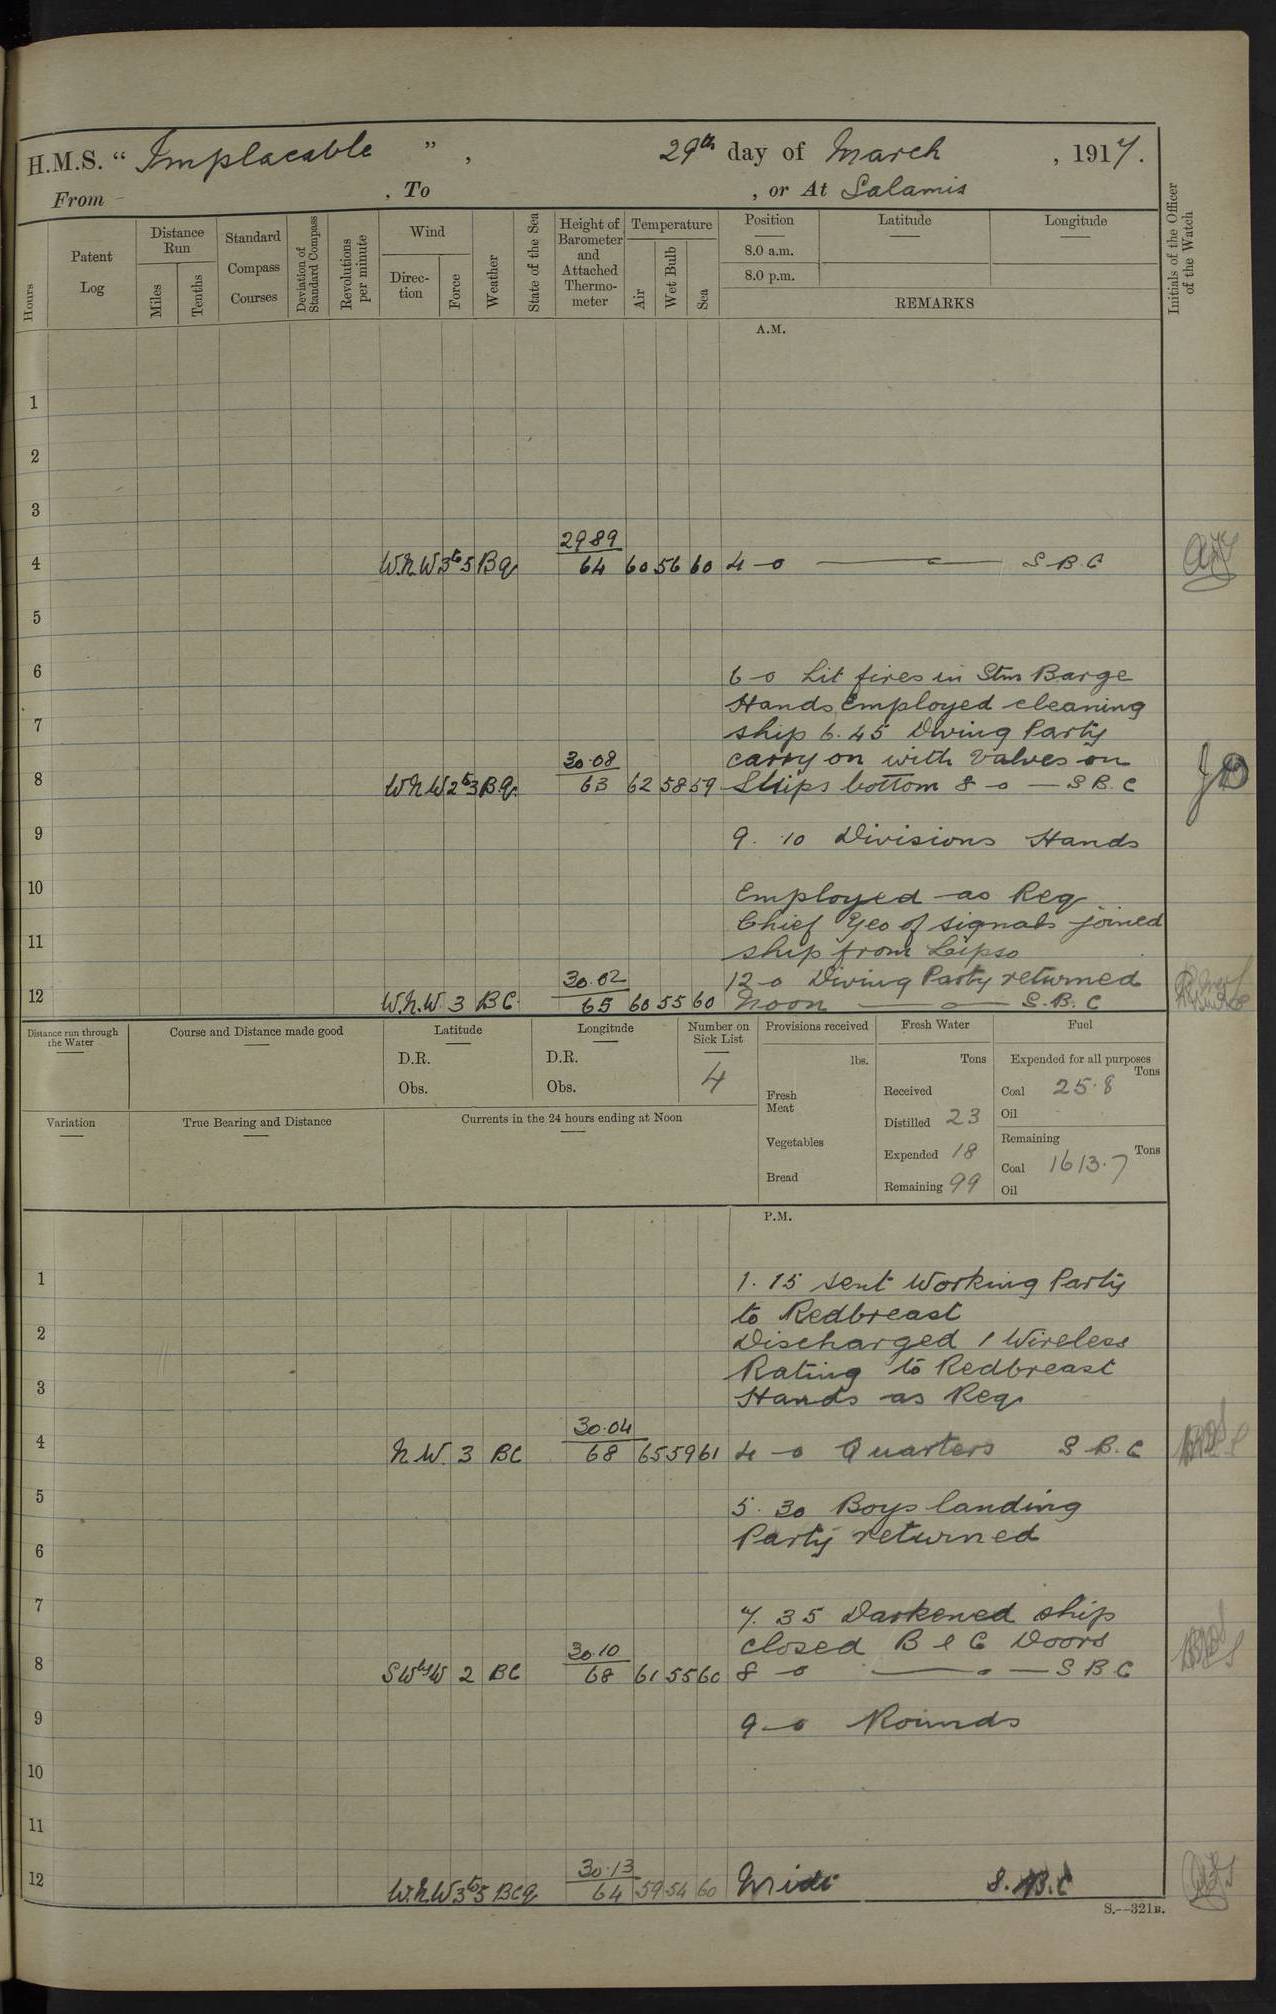 H.M.S. “ Implacable ” , 29th day of March , 1917.
From , To , or At Salamis
Hours
Patent Log
Distance Run
Miles
Tenths
Standard Compass Courses
Deviation of Standard Compass
Revolutions per minute
Wind
Direction
Force
Weather
State of the Sea
Height of Barometer and Attached Thermometer
Temperature
Air
Wet Bulb
Sea
Position
8.0 a.m.
8.0 p.m.
Latitude
Longitude
REMARKS
Initials of the Officer of the Watch
A.M.
1
2
3
29 89
4 W.N.W 3 to 5 Bq 64 60 56 60 4 - 0 S.B.C
5
6 6 - 0 Lit fires in Stm Barge
Hands Employed cleaning
7 ship 6.45 Diving Party
30.08 carry on with valves on
8 W N W 2 to 3 Bq. 63 62 58 59 Ships bottom 8 - 0 — S B. C
9 9. 10 Divisions Hands
10 Employed as Req
Chief Yeo of signals joined
11 ship from Lipso
30.02 12 - 0 Diving Party returned
12 W.N.W. 3 BC 65 60 55 60 Noon S.B. C
Distance run through the Water
Course and Distance made good
Latitude
D.R.
Obs.
Longitude
D.R.
Obs.
Number on Sick List
4
Provisions received
lbs.
Fresh Meat
Vegetables
Bread
Fresh Water
Tons
Received
Distilled 23
Expended 18
Remaining 99
Fuel
Expended for all purposes
Tons
Coal 25.8
Oil
Remaining
Tons
Coal 1613.7
Oil
Variation
True Bearing and Distance
Currents in the 24 hours ending at Noon
P.M.
1 1. 15 sent Working Party
to Redbreast
2 Discharged 1 Wireless
Rating to Redbreast
3 Hands as Req
30.04
4 N.W. 3 BC 68 65 59 61 4 - 0 Quarters S B. C
5 5. 30 Boys landing
6 Party returned
7 7. 35 Darkened ship
30.10 closed B & C Doors
8 SWbyW 2 BC 68 61 55 60 8 - 0 — S B C
9 9 - 0 Rounds
10
11
30.13
12 W.N.W 3 to 5 BCq 64 59 54 60 Midt S. B. C
S.—321B.